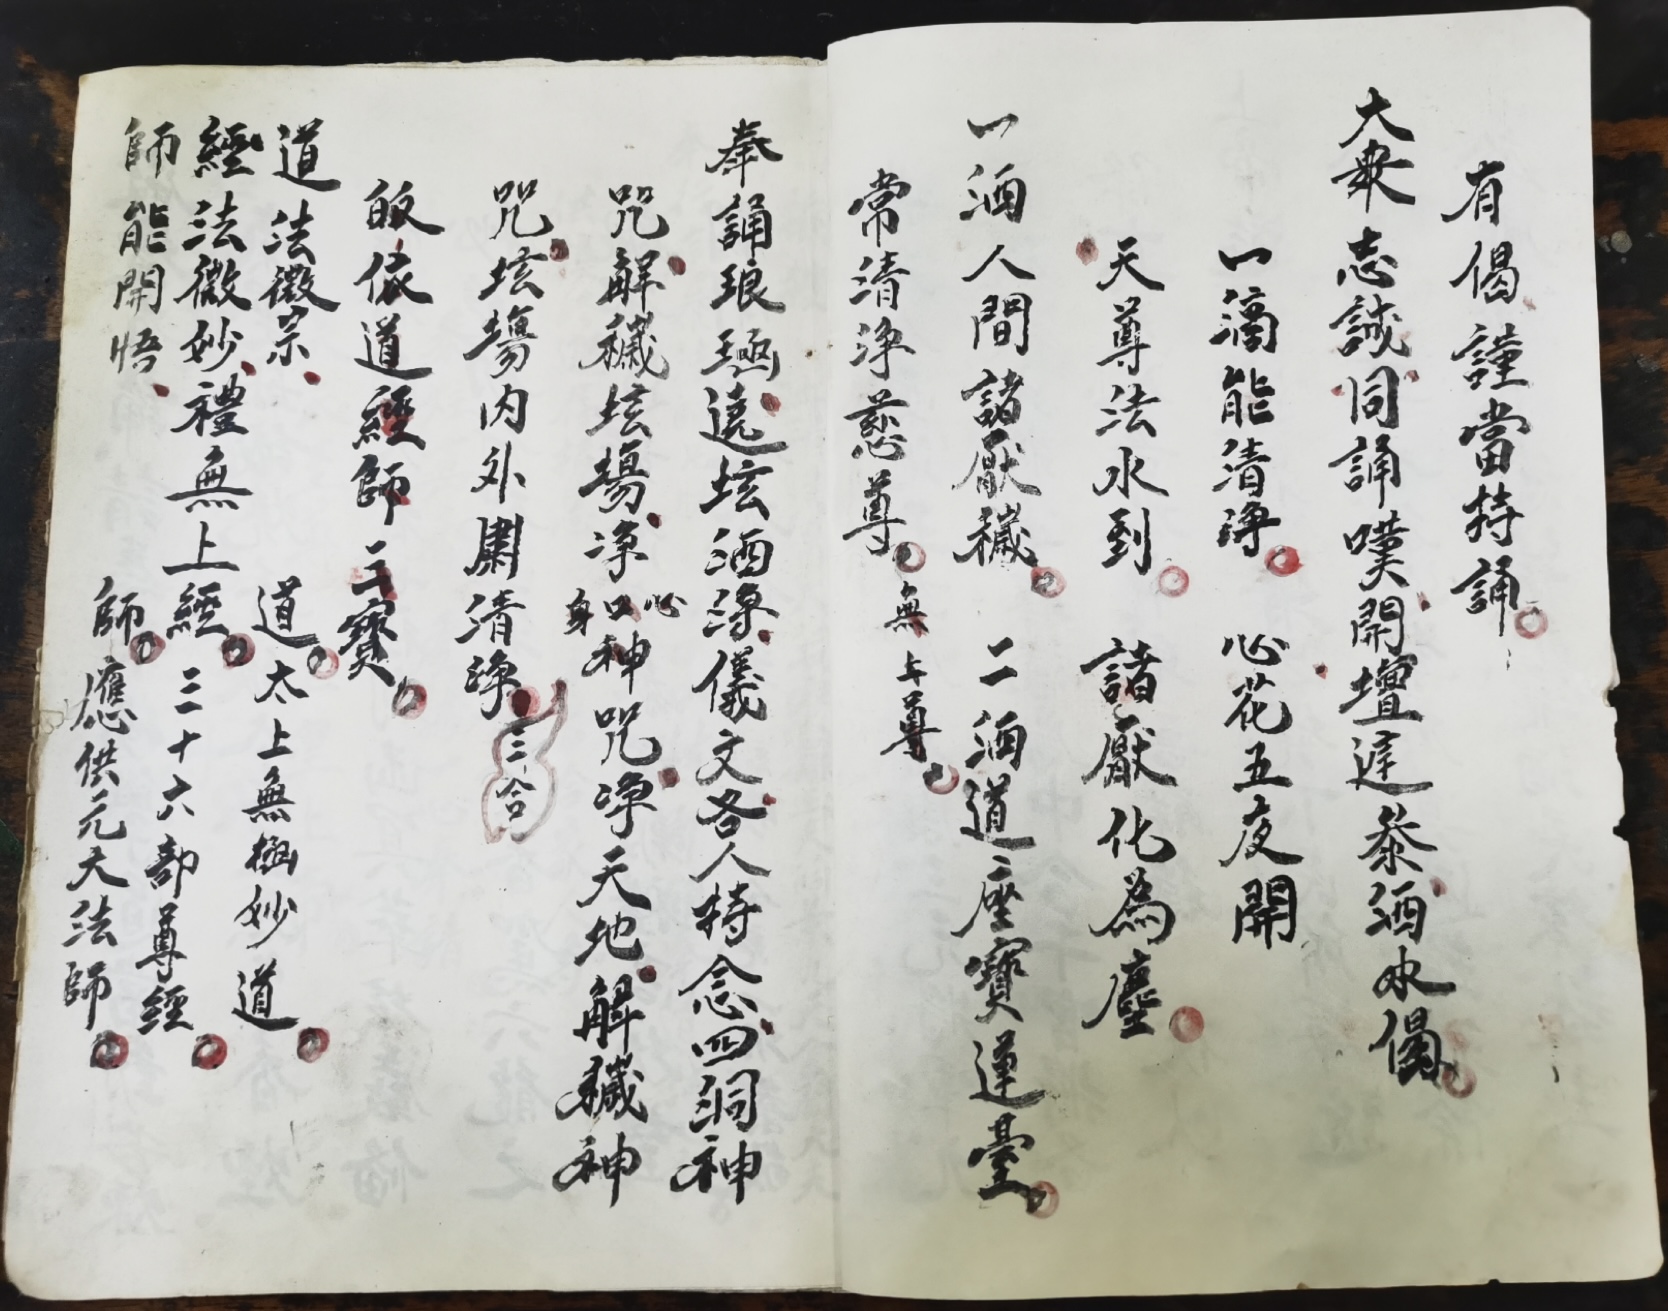 有偈謹當持誦
大衆志誠同誦嘆開壇筵叅洒水偈
一滴能清淨 心花五夜開
天尊法水到 諸厭化為塵
一洒人間諸厭穢 二洒道座寶蓮臺
常清淨慈尊 無上尊
奉誦琅函遶坛洒淨儀文各人持念四洞神
咒解穢坛場淨心口身神咒净天地解穢神
咒坛場内外肅清淨三合
皈依道經師三寶
道法微宗 道太上無極妙道
經法微妙禮無上經三十六部尊經
師能開悟 師應供元大法師